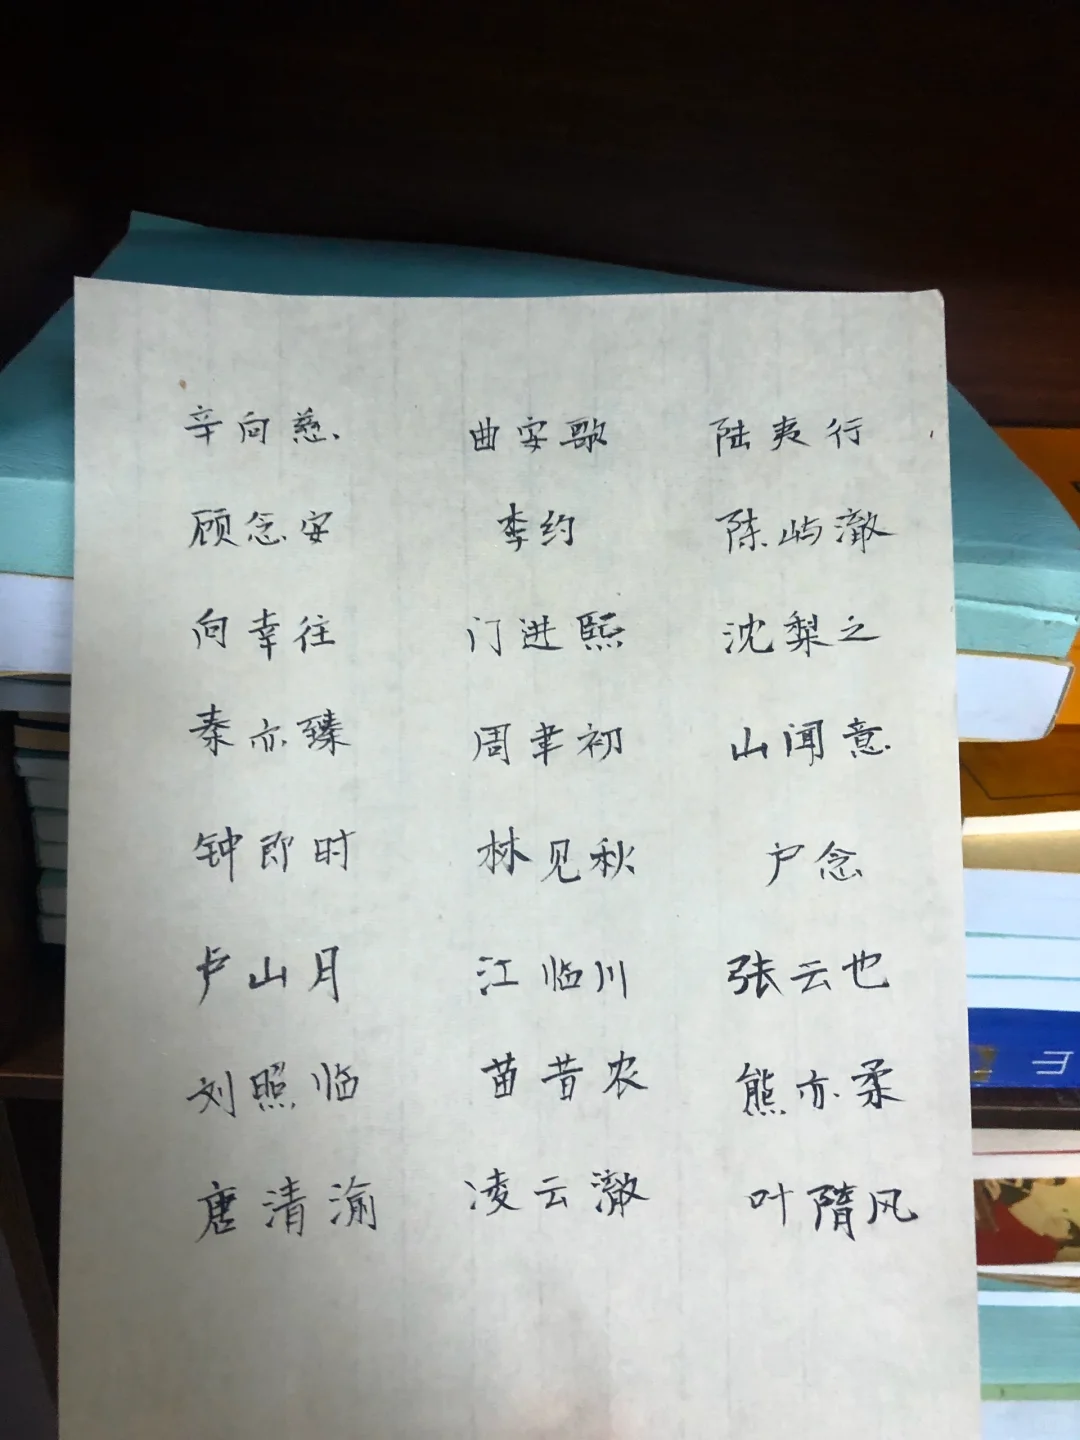 辛向慈 曲安歌 陆夷行
顾念安 李约 陈屿澈
向幸往 门进熙 沈梨之
秦亦臻 周聿初 山闻意
钟即时 林见秋 户念
卢山月 江临川 张云也
刘照临 苗昔农 熊亦柔
唐清渝 凌云澈 叶隋风